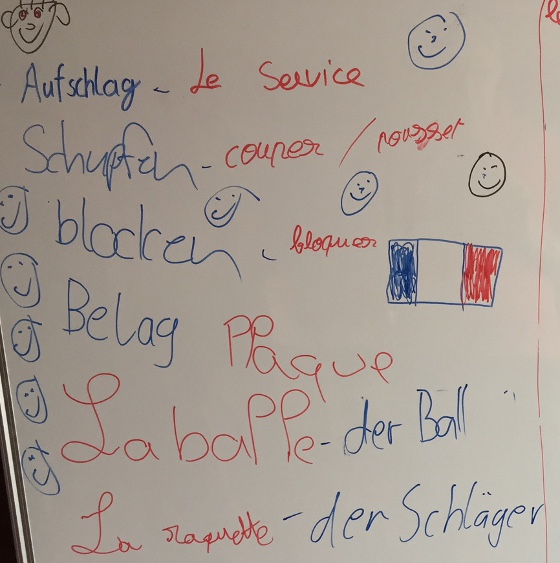 Aufschlag - Le Service
Schupfen - couper / pousser
blocken - bloquer
Belag Plaque
La balle - der Ball
La raquette - der Schläger